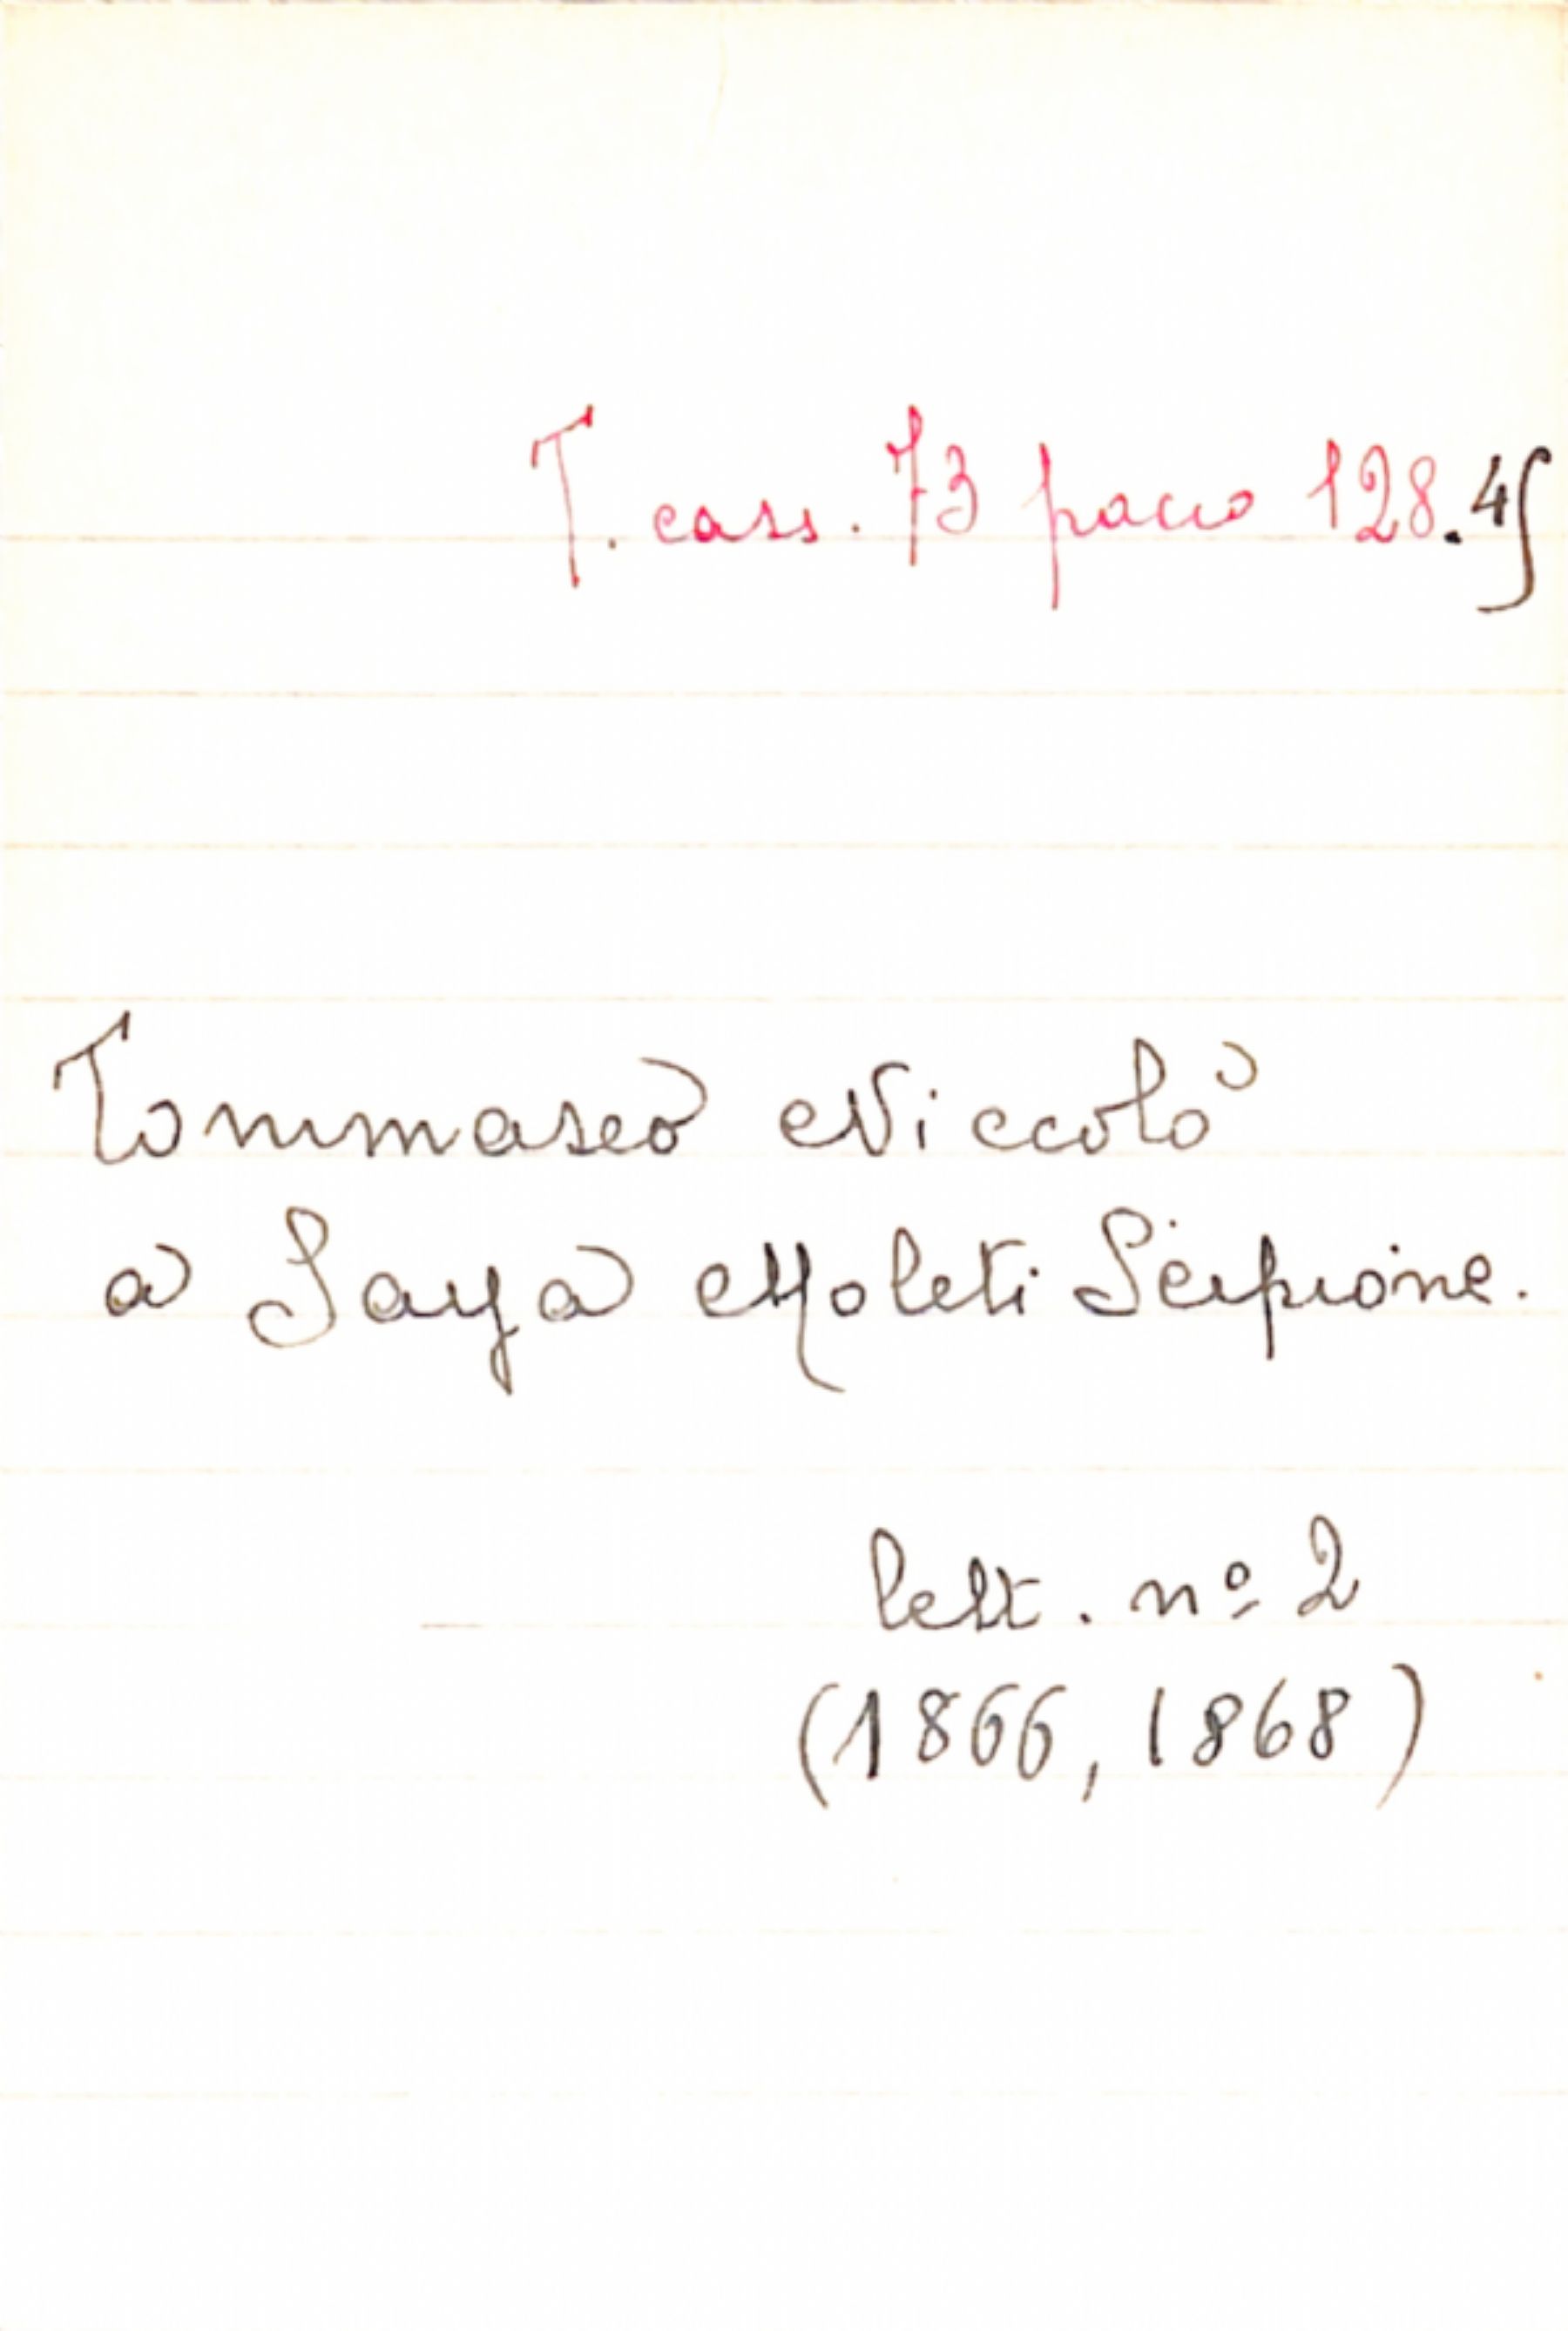 T. cass. 73 pacco 128.45
Tommaseo Niccolò
a Saya Moleti Scipione.
lett. nº 2
(1866, 1868)